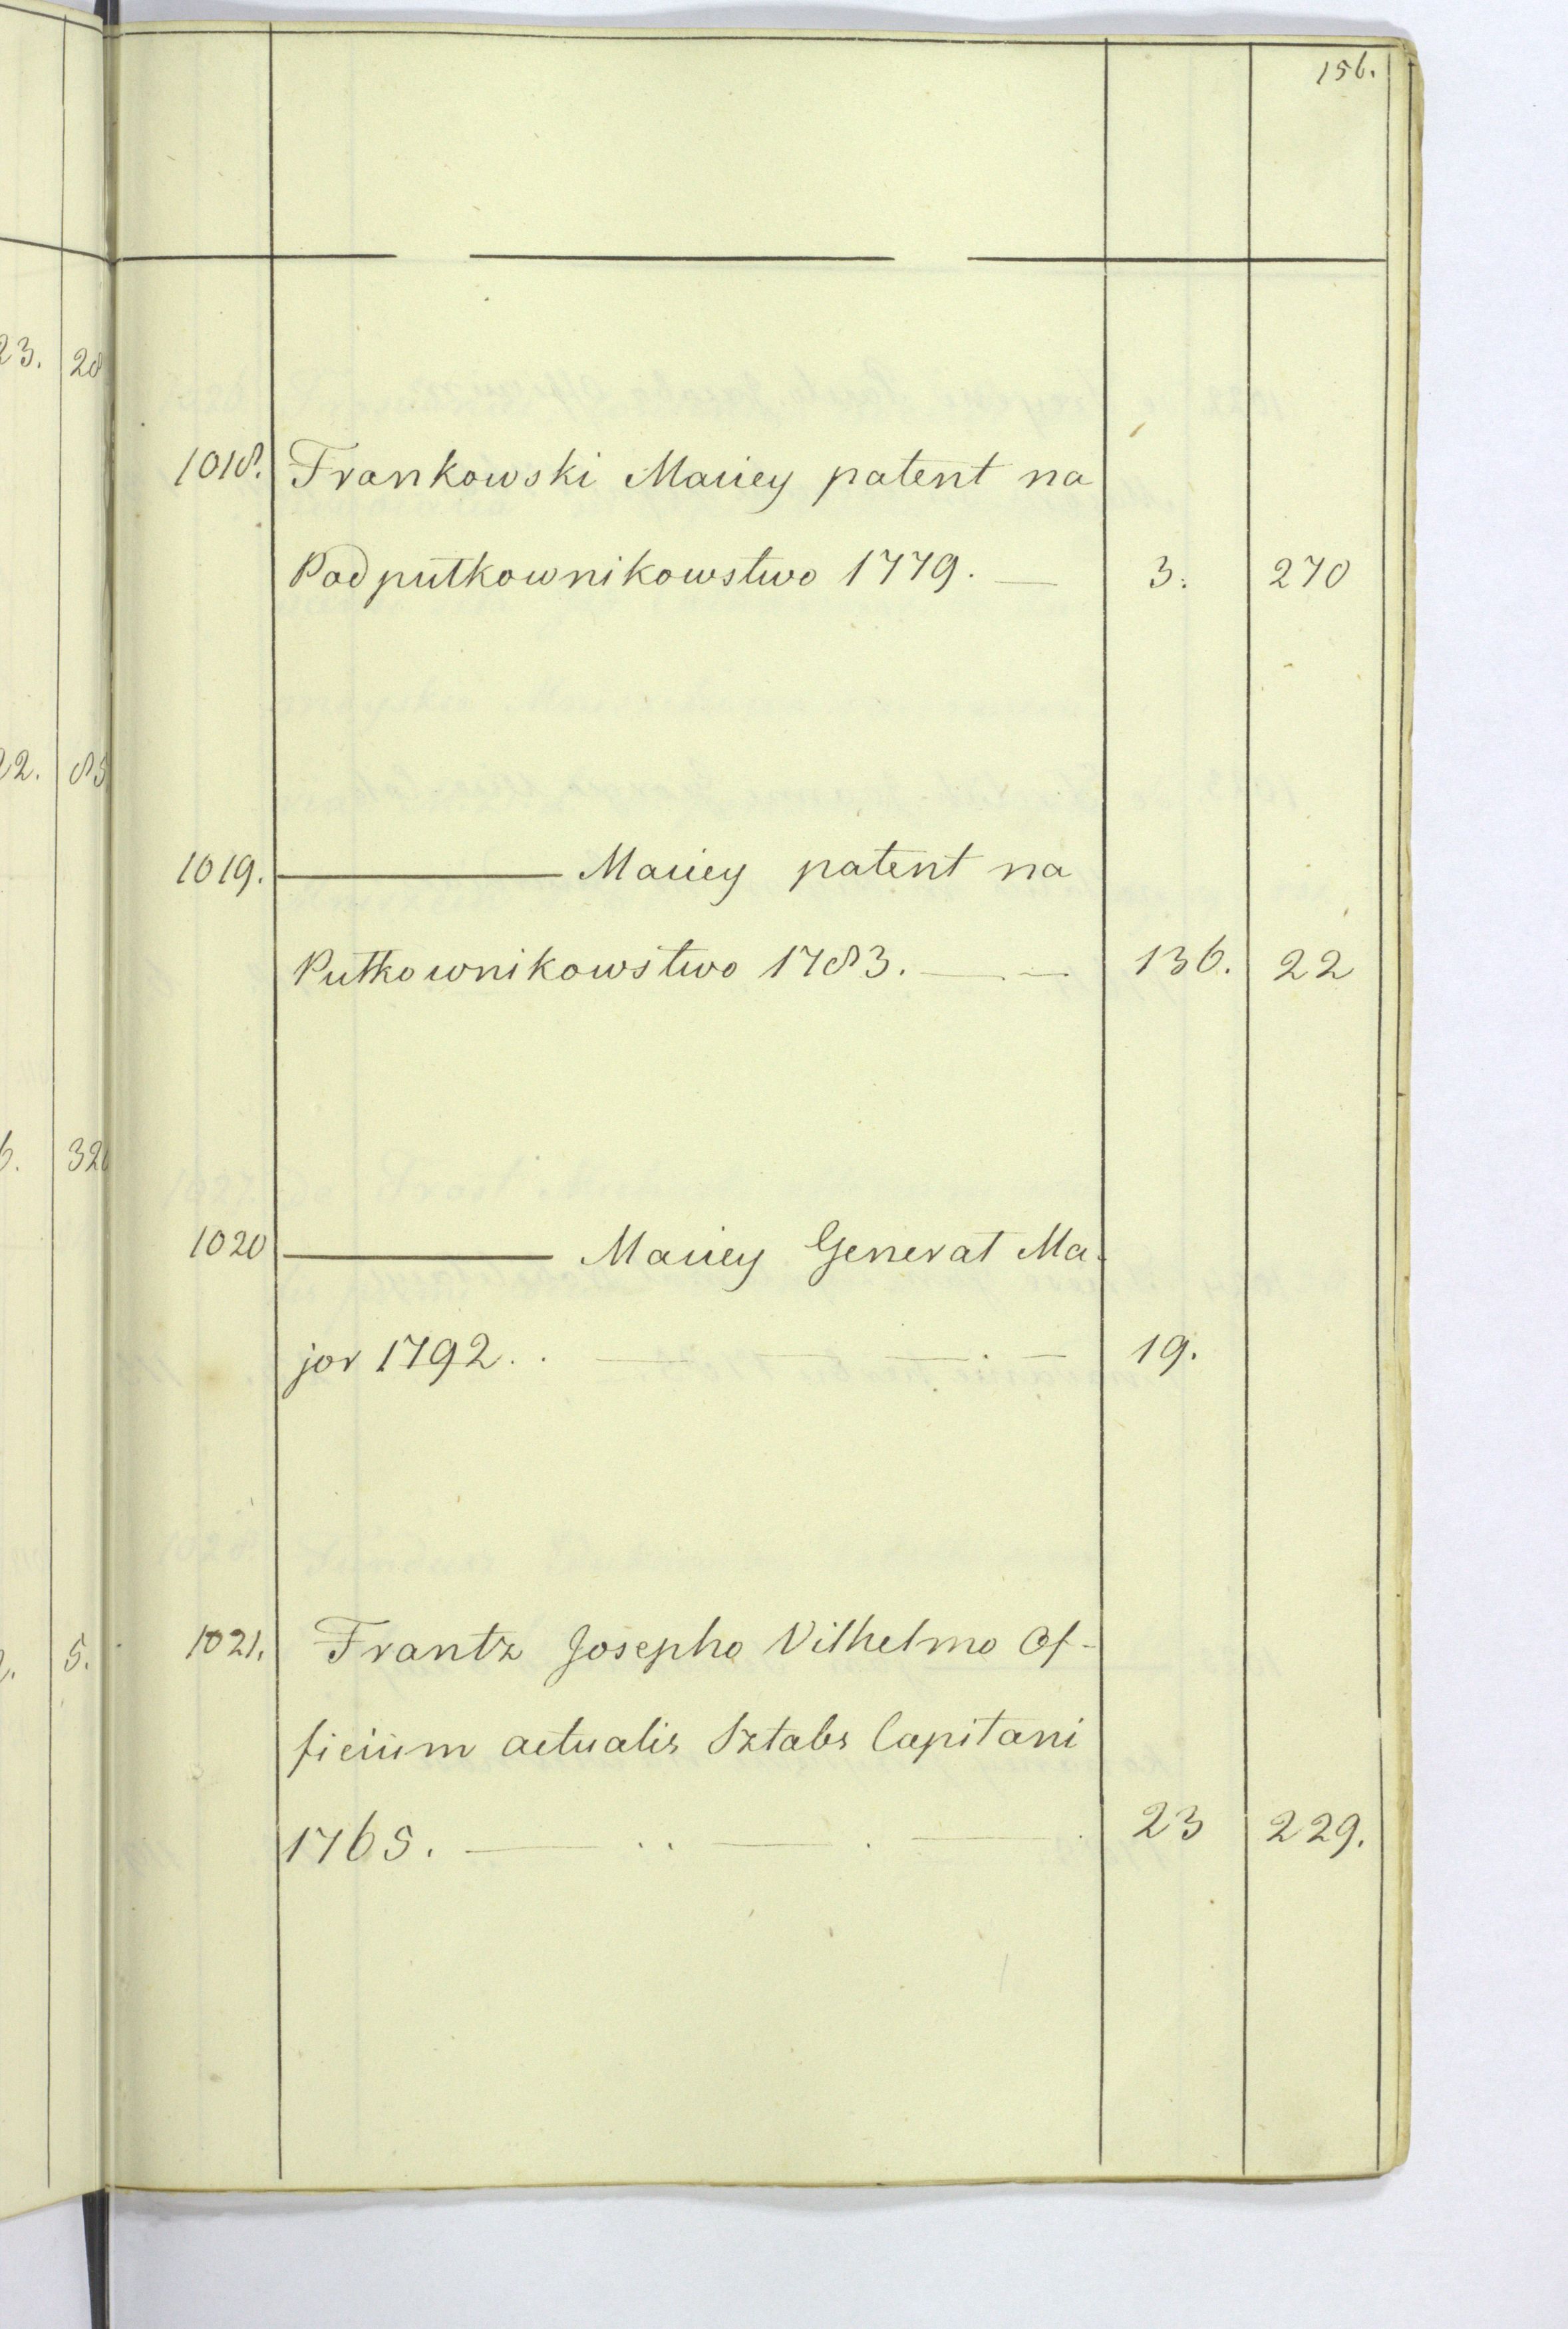 156.
23. 28
1018. Frankowski Maciey patent na
Podpułkownikowstwo 1779. — 3. 270
22. 85
1019. ——— Maciey patent na
Pułkownikowstwo 1783. — — 136. 22
6. 326
1020 ——— Maciey Generał Ma-
jor 1792. . — — — . — 19.
5.
1021. Frantz Josepho Vilhelmo Of-
ficium actualis Sztabs Capitani
1765. — . . — . — . 23 229.